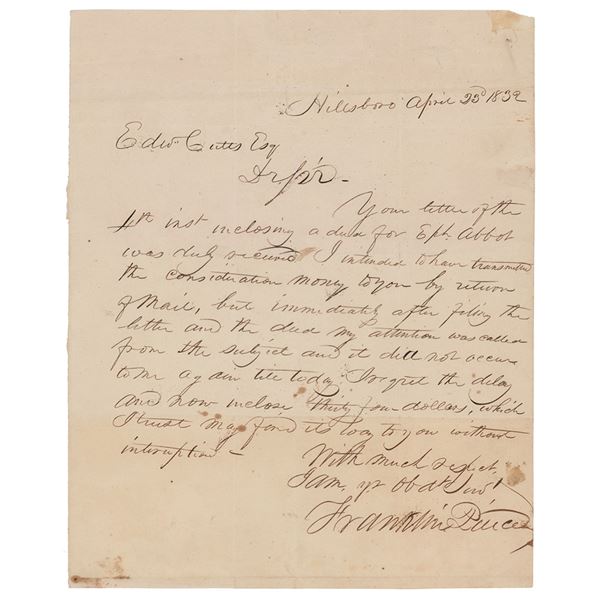 Hillsboro April 23d 1832
Edwd. Cutts Esq
Dr Sir -
Your letter of the
4th inst inclosing a deed for Eph. Abbot
was duly received I intended to have transmitted
the consideration money to you by return
of Mail, but immediately after filing the
letter and the deed my attention was called
from the subject and it did not occur
to me again till today. I regret the delay
and now inclose thirty four dollars, which
I trust may find its way to you without
interuption -
With much respect
I am, yr Obdt Servt
Franklin Pierce